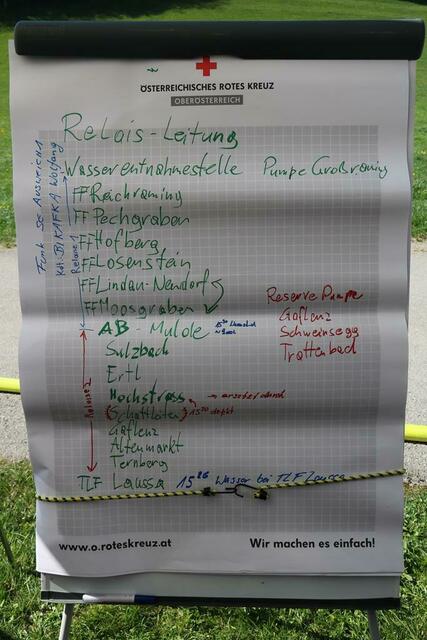 ÖSTERREICHISCHES ROTES KREUZ
OBERÖSTERREICH
Relais-Leitung
Wasserentnahmestelle Pumpe Großraming
FF Reichraming
FF Pechgraben
FF Hofberg
FF Losenstein
FF Lindau-Neudorf
FF Moosgraben
AB - Mulde
Sulzbach
Ertl
Hochstrass → ersetzt durch
(Schattleiten) 15³⁰ defekt
Gaflenz
Altenmarkt
Ternberg
TLF Laussa 15²⁶ Wasser bei TLF Laussa
Reserve Pumpe
Gaflenz
Schweinsegg
Trattenbach
Funk SE Ausweich 1
Kdt. BI KAFKA Wolfgang
Relais 1
Relais 2
www.o.roteskreuz.at
Wir machen es einfach!